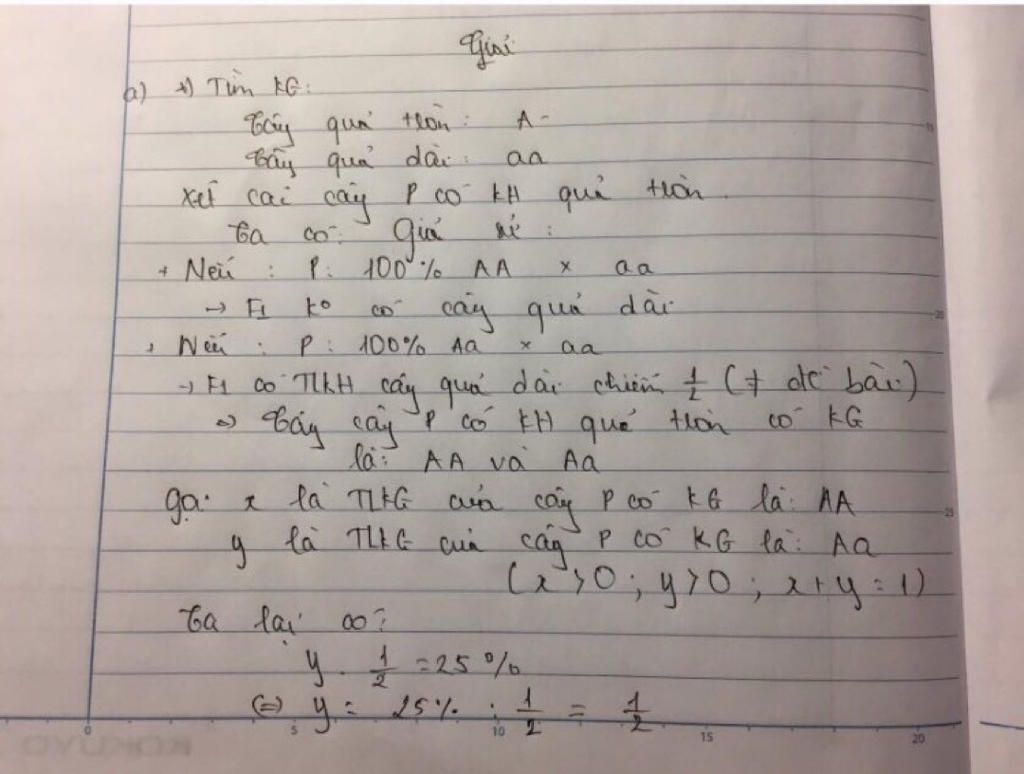 Giải
a) +) Tìm KG:
Cây quả tròn: A-
Cây quả dài: aa
Xét các cây P có KH quả tròn.
Ta có: Giả sử:
+ Nếu: P: 100% AA × aa
→ F1 K° có cây quả dài
+ Nếu: P: 100% Aa × aa
→ F1 có TLKH cây quả dài chiếm 1/2 (≠ đề bài)
=> cây P có KH quả tròn có KG
là: AA và Aa
Gọi x là TLKG của cây P có KG là: AA
y là TLKG của cây P có KG là: Aa
(x > 0 ; y > 0 ; x + y = 1)
Ta lại có:
y . 1/2 = 25%
(=) y = 25% : 1/2 = 1/2
KOKUYO
0 5 10 15 20